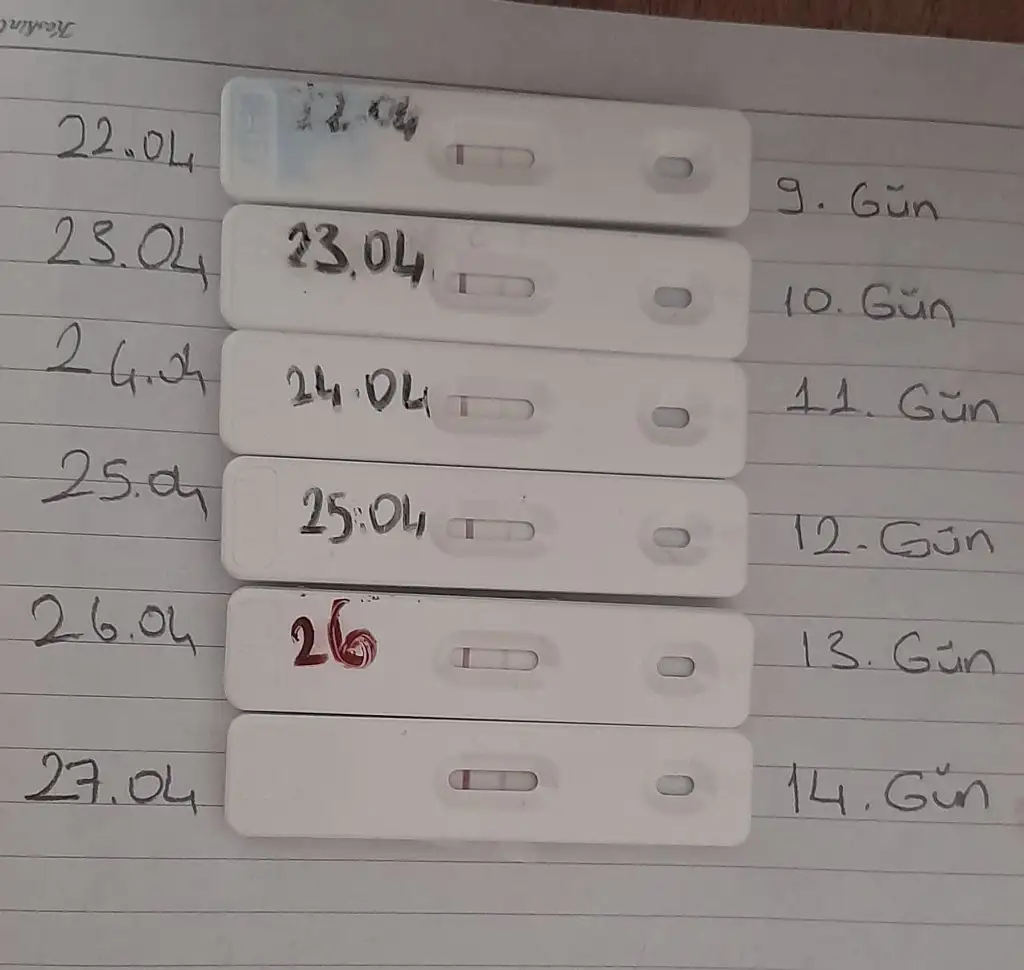 22.04 22.04 9. Gün
23.04 23.04 10. Gün
24.04 24.04 11. Gün
25.04 25.04 12. Gün
26.04 26 13. Gün
27.04 14. Gün